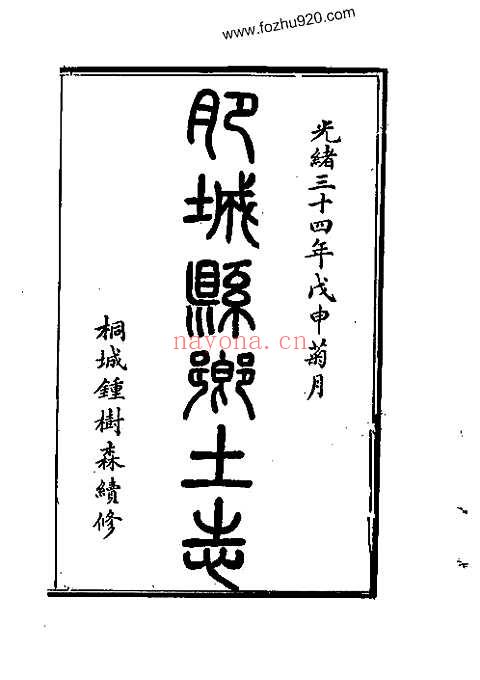 www.fozhu920.com
光緒三十四年戊申菊月
肥城縣鄉土志
桐城鍾樹森續修
nayona.cn